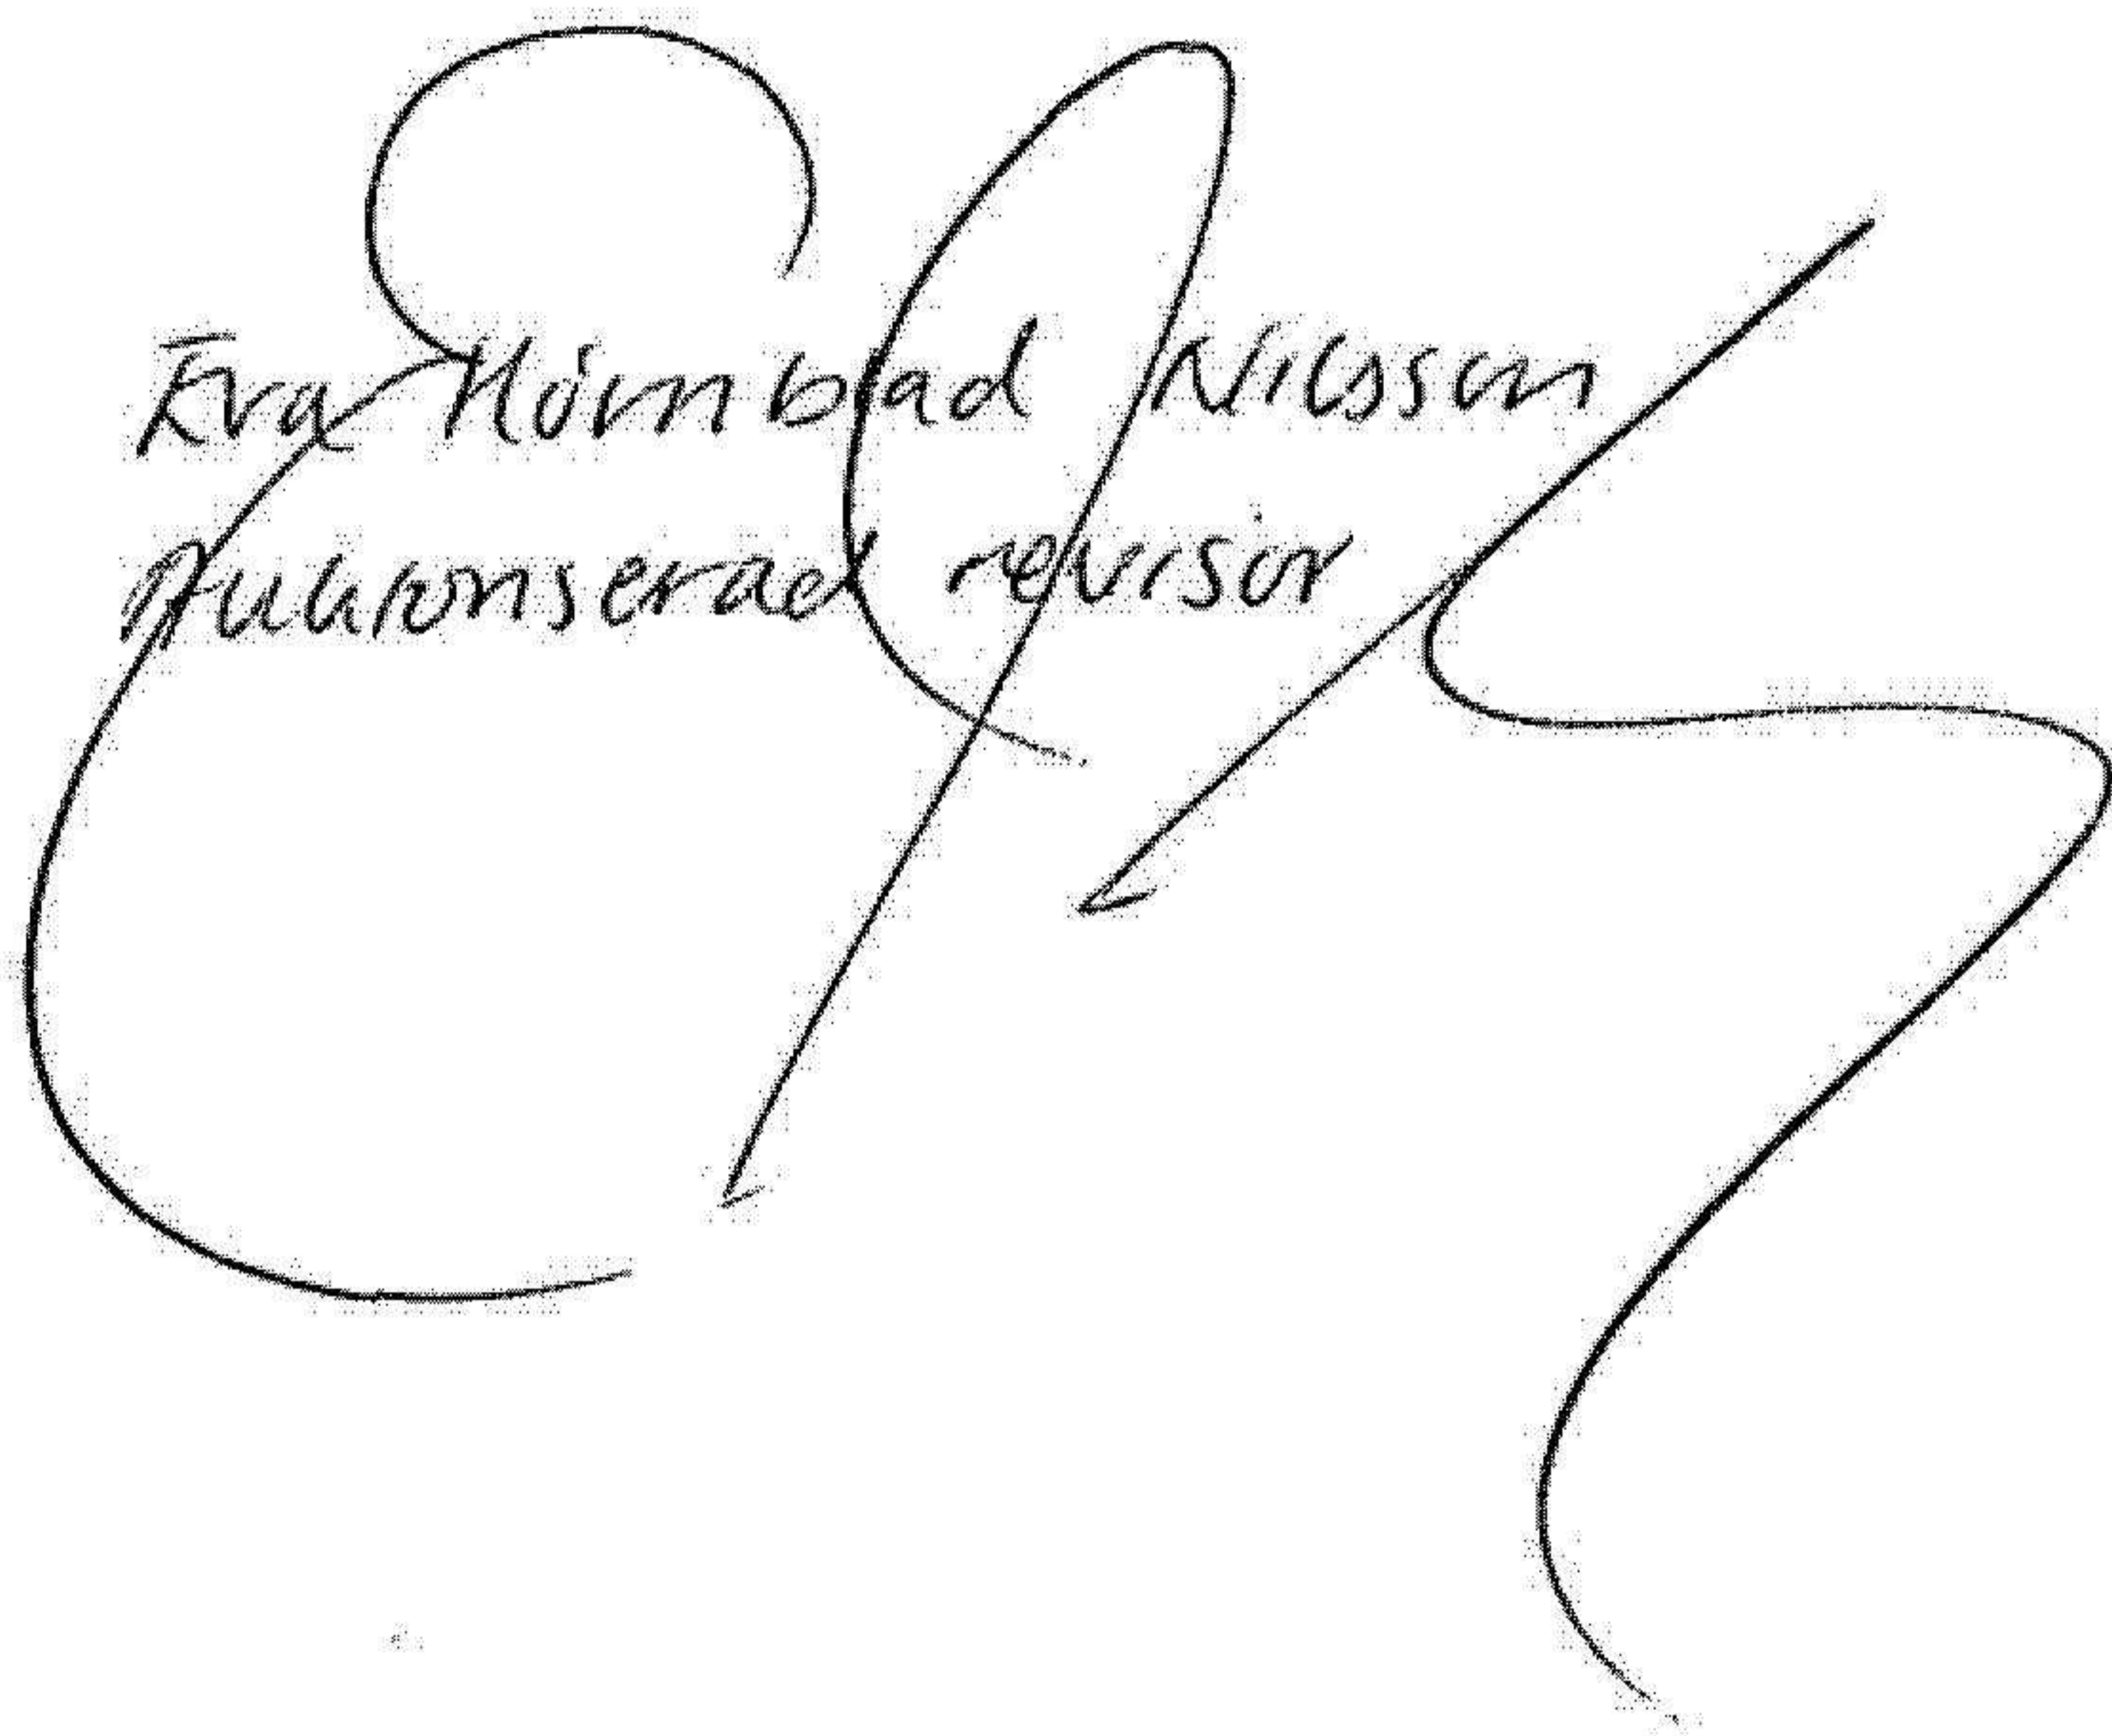 Eva Hörnblad Nilsson
Auktoriserad revisor